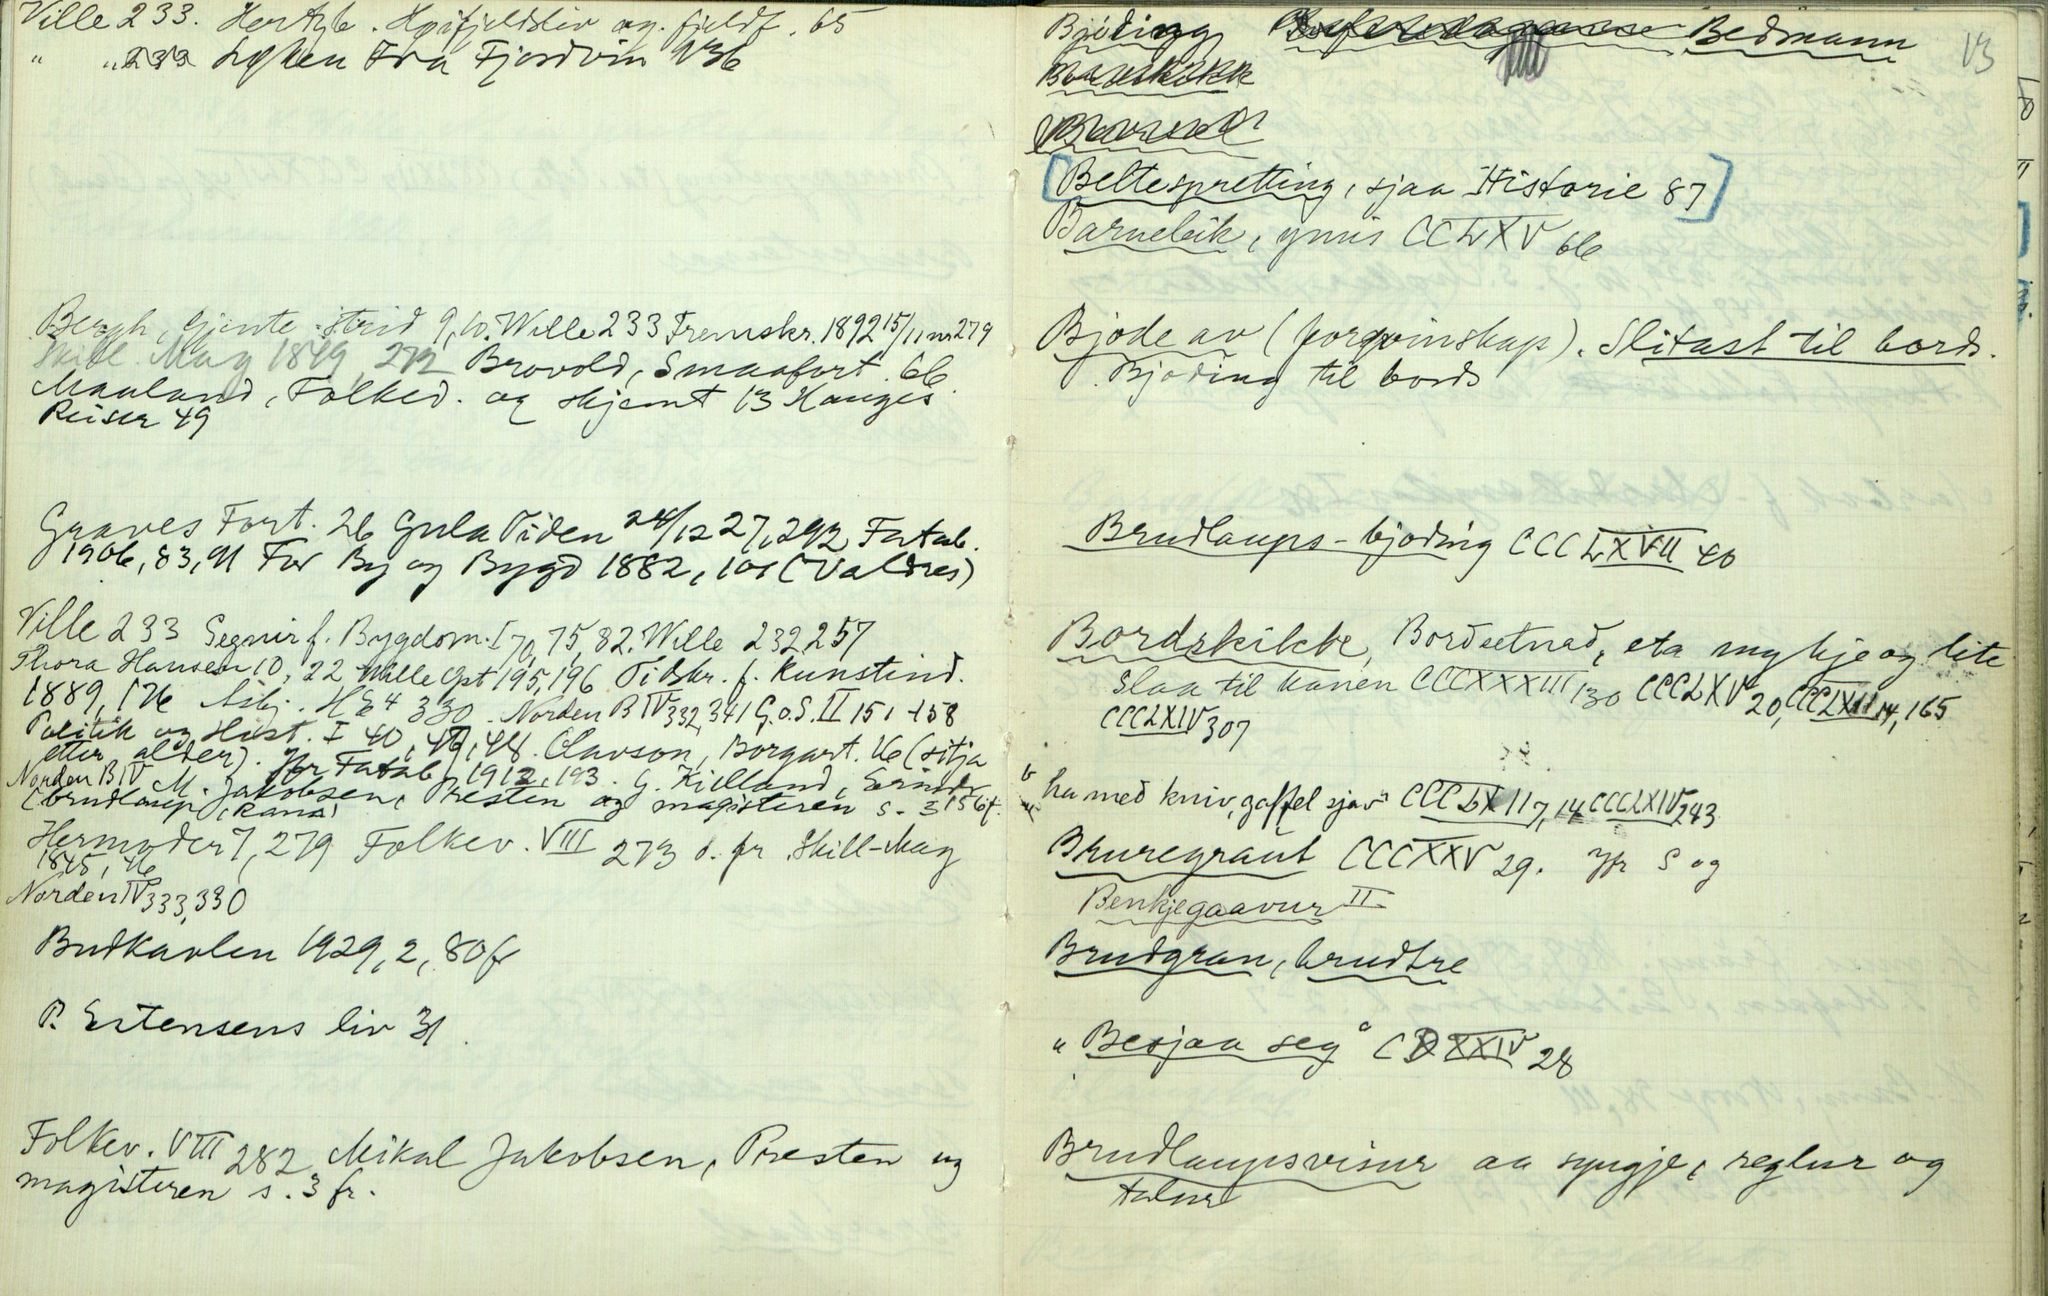 Ville 233. Hertzb. Høifjeldsliv og fjeldf. 65
" " 233 Løken Fra Fjordvin 1736
Bergh, Gjente-strid 9, 10. Wille 233 Fremskr. 1892 15/11 nr 279
Skill. Mag 1849, 272 Brovold, Smaafort. 66
Mauland, Folked. og skjemt 13 Hauges
Reiser 49
Graves Fort. 26 Gula Tiden 24/12 27, 292 Fatab.
1906, 83, 91 For By og Bygd 1882, 101 (Valdres)
Ville 233 Segnir f. Bygdom. I 70, 75, 82. Wille 232, 257
Thora Hansen 10, 22 Wille Opt 195, 196 Tidskr. f. Kunstind.
1889, 176 Asbj. HE4 330. Norden B IV 332, 341 G.o.S. II 151 158
Politik og Hist. I 40, 48. Olavson, Borgart. 16 (sitja
etter alder). Jfr Fatab. 1912, 193. G. Kielland,
Norden B IV M. Jakobsen, Presten og magisteren s. 3 156f.
(brudlaup, Rana)
Hermoder 7, 279 Folkev. VIII 273 o. fr Skill-Mag
1845, 46
Norden IV 333, 330
Budkavlen 1929, 2, 80 fr
P. Estensens liv 31
Folkev. VIII 282 Mikal Jakobsen, Presten og
magisteren s. 3 fr.
13
Bjoding Bedmann
Bordskikk
[Beltespretting, sjaa Historie 87]
Barneleik, ymis CCLXV 66
Bjode av (forgvinskap). Slitast til bords.
Bjoding til bords
Brudlaups-bjoding CCCLXVII 40
Bordskikk, Bordsetnad, eta mykje og lite
Slaa til kanen CCCXXXIII 130 CCCLXV 20, CCCLXII 14, 165
CCCLXIV 307
ha med kniv, gaffel sjøv" CCCLXII 7, 14 CCCLXIV 243
Bruregraut CCCXXV 29. Jfr S og
Benkjegaavur II
Brudgran, brudtre
"Besjaa seg" CDXXIV 28
Brudlaupsvisur aa syngje, reglur og
talur